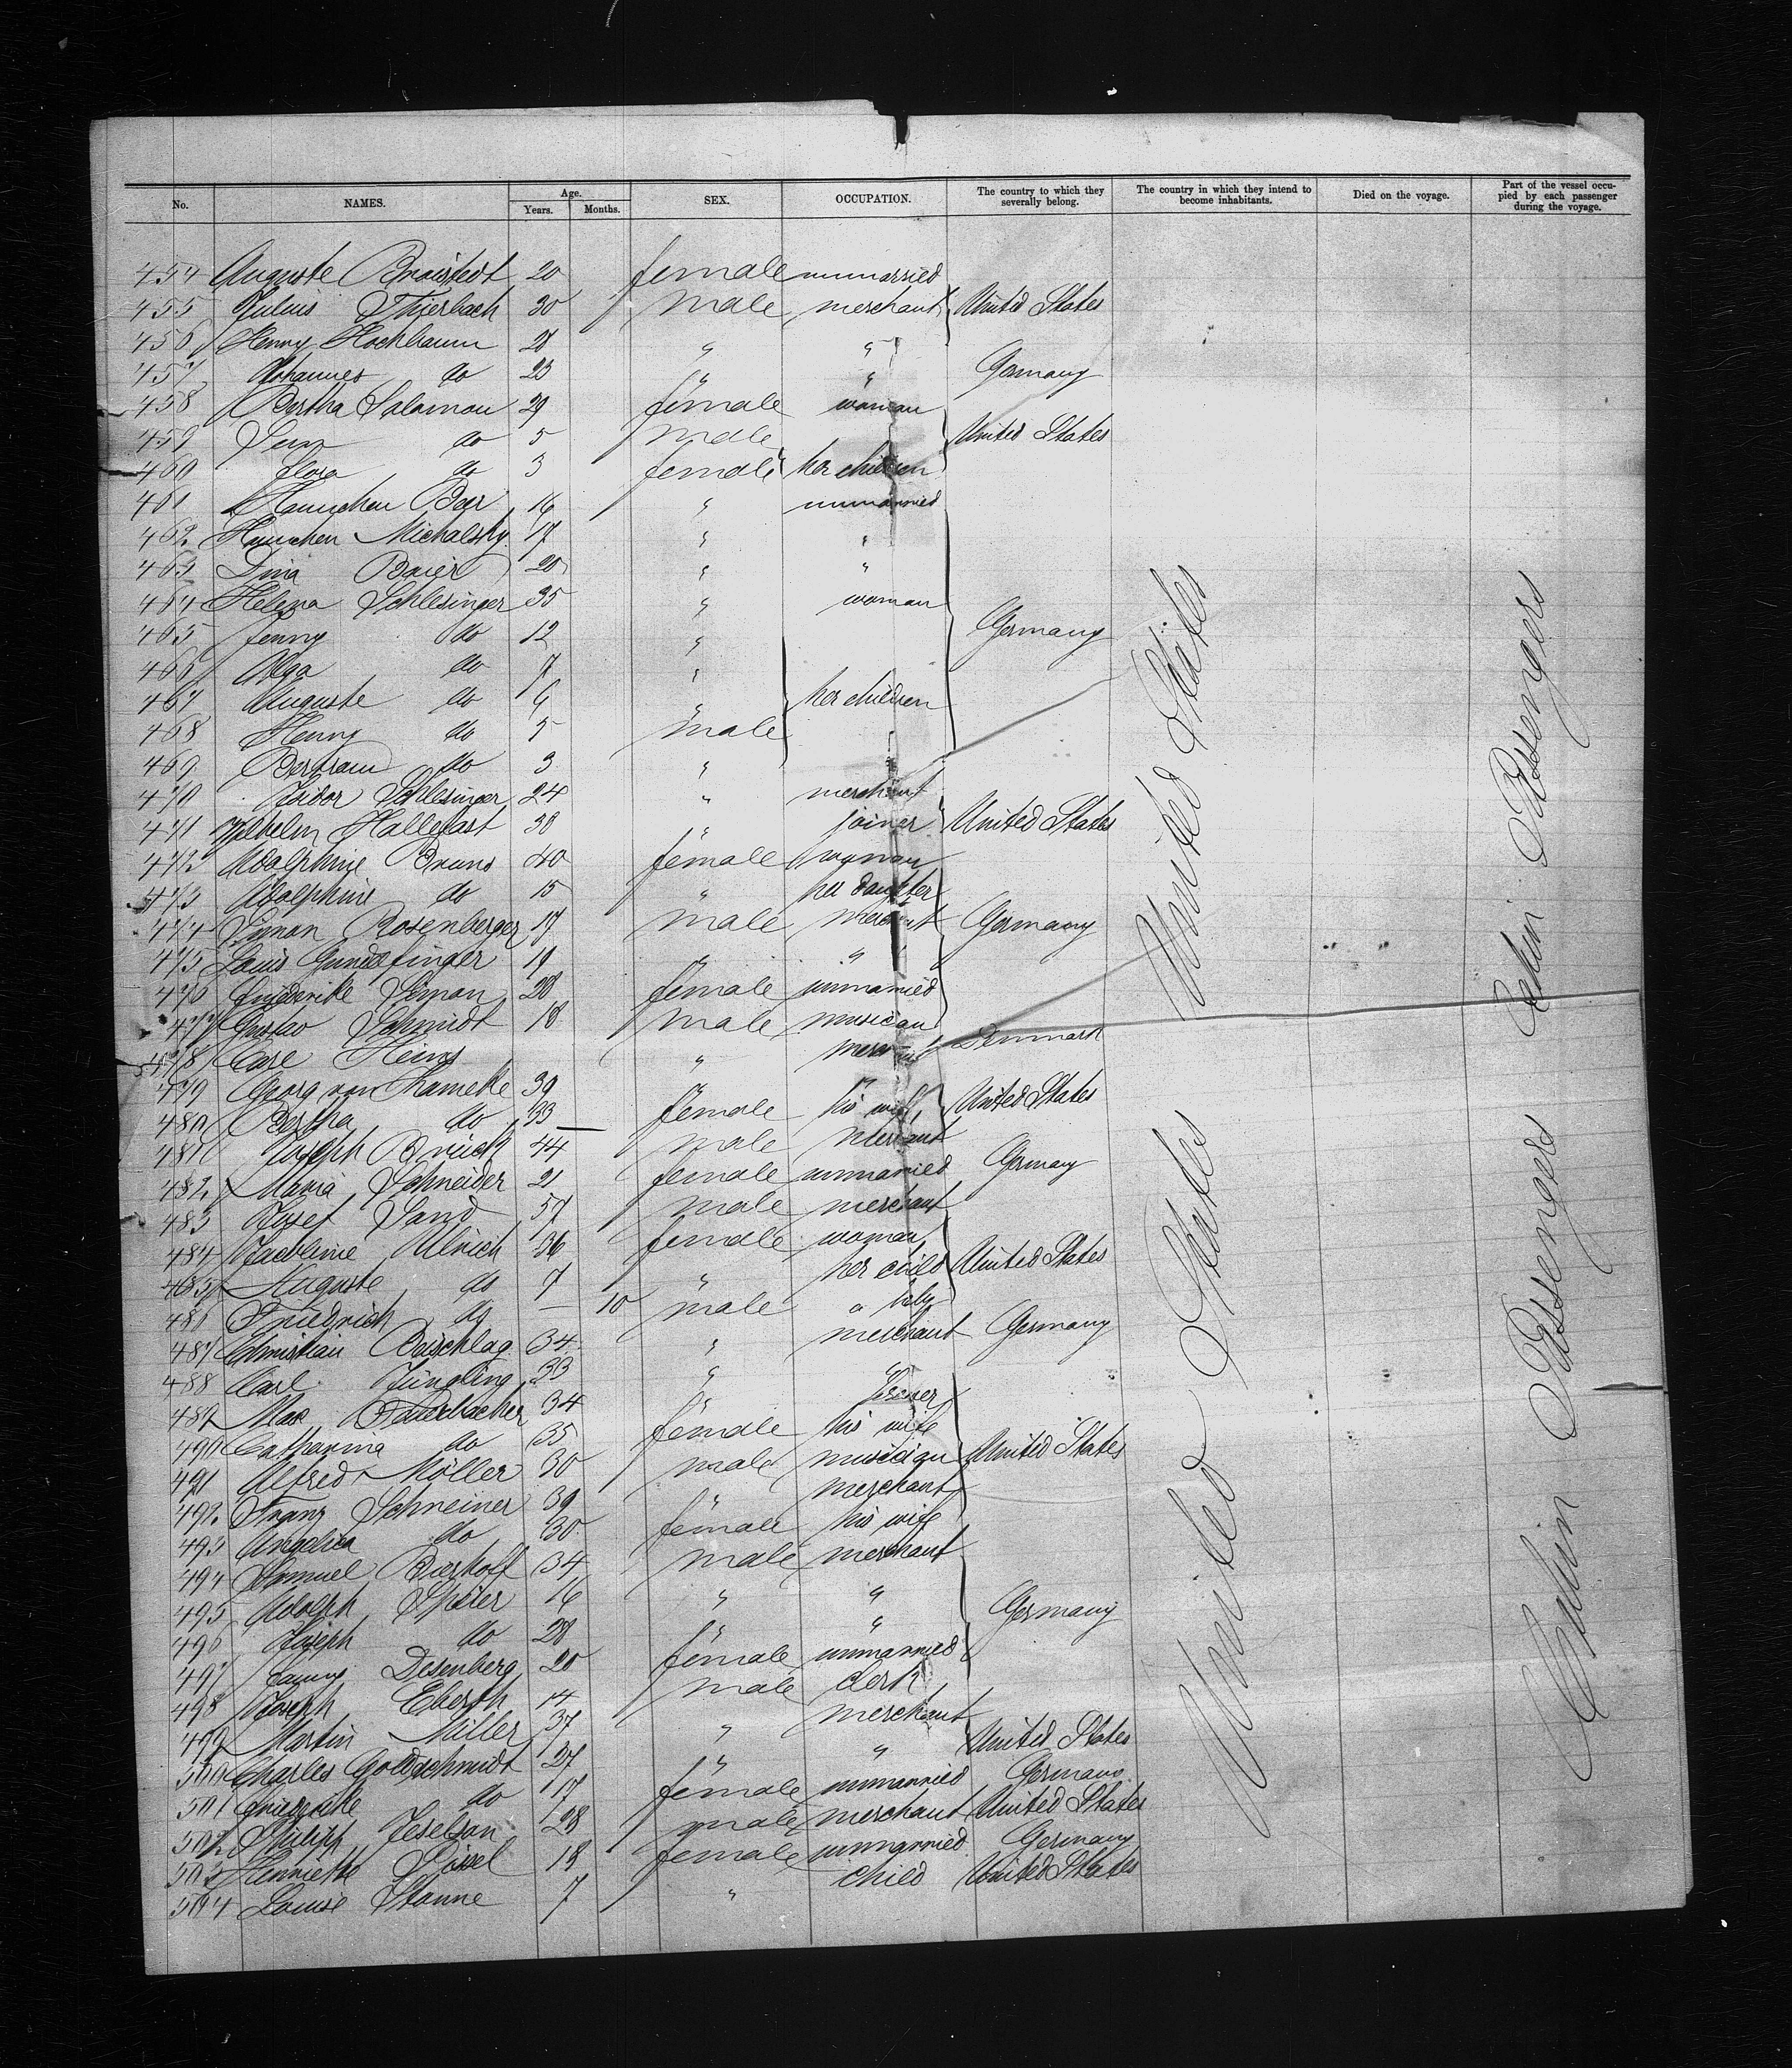 No. NAMES. Age. Years. Months. SEX. OCCUPATION. The country to which they severally belong. The country in which they intend to become inhabitants. Died on the voyage. Part of the vessel occupied by each passenger during the voyage.
454 Auguste 20 female unmarried
455 Julius Thierbach 30 male merchant United States
456 Henry Hochbaum 28 " "
457 Johannes do 23 " " Germany
458 Bertha Salamon 29 female woman
459 do 5 male United States
460 Flora do 3 female her children
461 16 " unmarried
462 Hannchen Michalsky 17 " "
463 Lina Baier 20 " "
464 Helena Schlesinger 35 " woman
465 Jenny do 12 " Germany
466 Olga do 7 "
467 Auguste do 6 " her children
468 Henry do 5 male
469 Bertram do 3 "
470 Isidor Schlesinger 24 " merchant
471 Wilhelm Hallefast 30 " joiner United States
472 Adolphine Bruns 40 female woman
473 Adolphine do 15 " her daughter
474 Simon Rosenberger 17 male merchant Germany
475 Louis Gundelfinger 19 " "
476 Friederike Simon 28 female unmarried
477 Gustav Schmidt 18 male musician
478 Carl Heins " merchant Denmark
479 Georg von Kameke 39 " "
480 Bertha do 33 female his wife United States
481 Joseph Brück 44 male merchant
482 Maria Schneider 21 female unmarried Germany
483 Josef Sand 57 male merchant
484 Jacobine Ulrich 36 female woman
485 Auguste do 7 " her child United States
486 Friedrich do — 10 male a baby
487 Christian Beischlag 34 " merchant Germany
488 Carl Jüngling 33 " "
489 Max 34 "
490 Catharina do 35 female his wife
491 Alfred Möller 30 male musician United States
492 Franz Schreiner 39 " merchant
493 Angelica do 30 female his wife
494 Samuel Bierhoff 34 male merchant
495 Adolph Spier 16 " "
496 Joseph do 28 " " Germany
497 Fanny Desenberg 20 female unmarried
498 Joseph Eberth 14 male clerk
499 Martin Miller 37 " merchant
500 Charles Goldschmidt 27 " " United States
501 Friederike do 17 female unmarried Germany
502 Philipp Jeselson 28 male merchant United States
503 Henriette 18 female unmarried Germany
504 Louise Stanne 7 " child United States
United States
United States
Cabin Passengers
Cabin Passengers